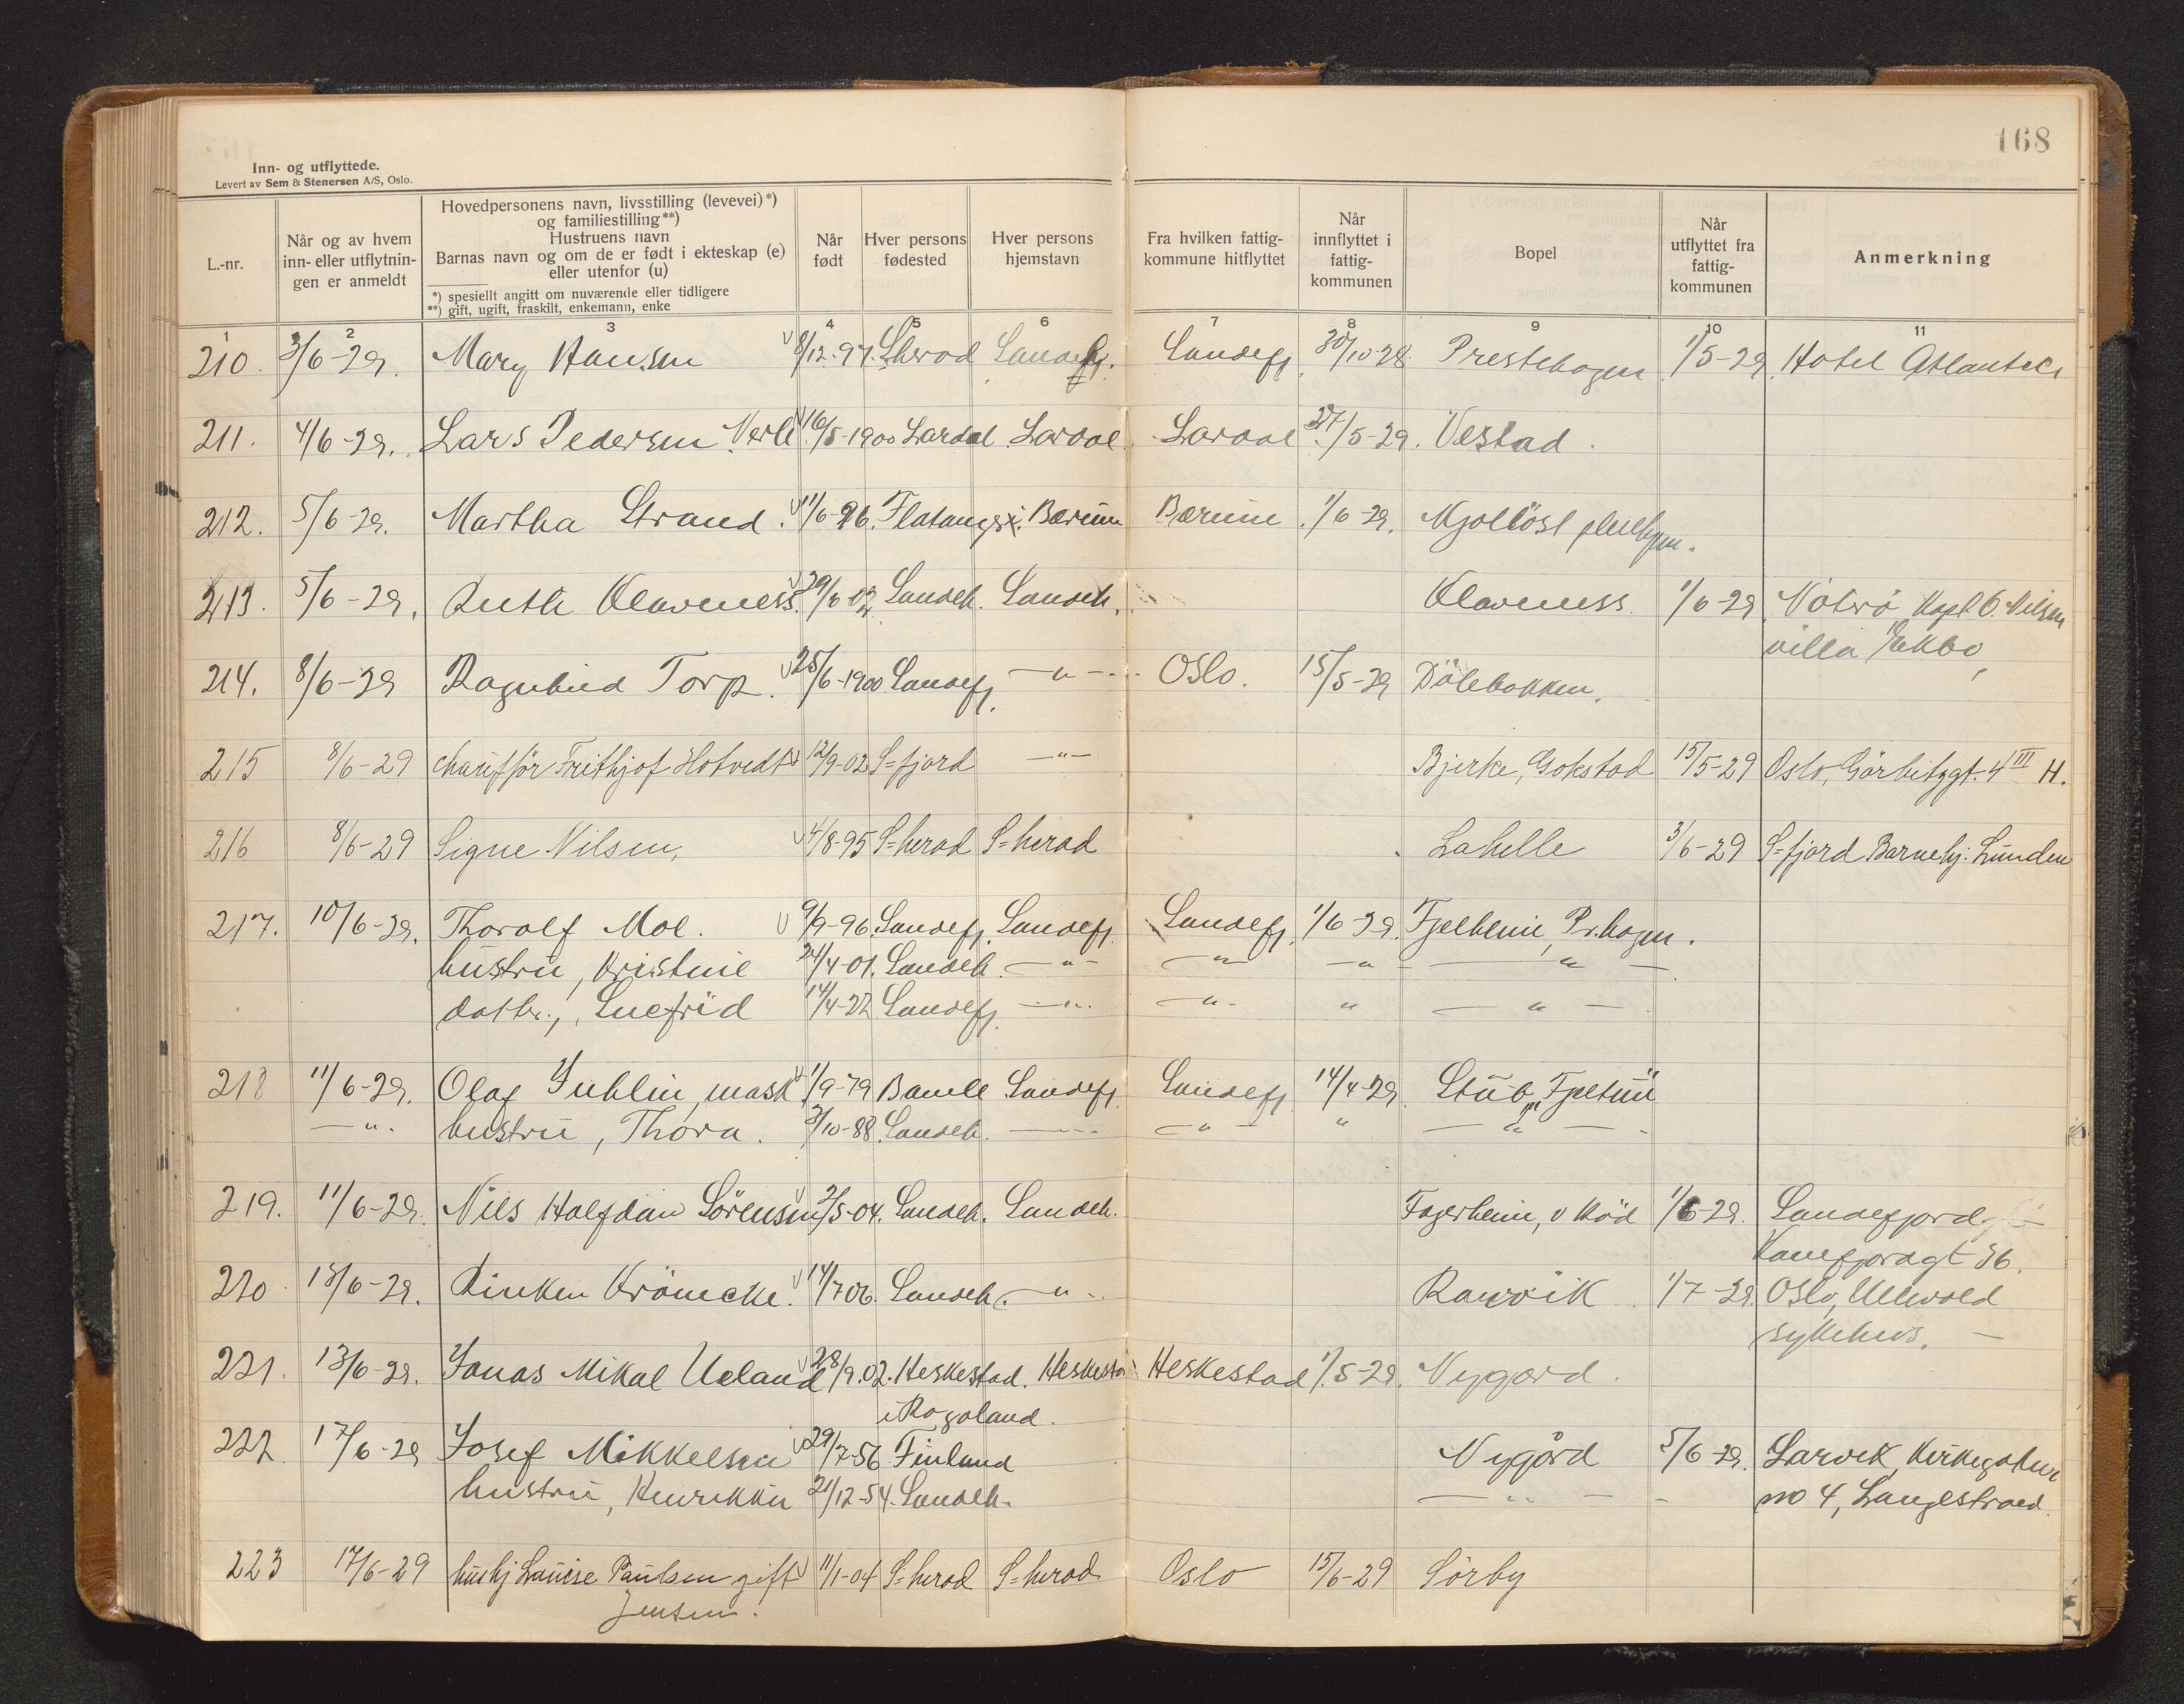 168
Inn- og utflyttede.
Levert av Sem & Stenersen A/S, Oslo.
L.-nr.
Når og av hvem
inn- eller utflytnin-
gen er anmeldt
Hovedpersonens navn, livsstilling (levevei)*)
og familiestilling**)
Hustruens navn
Barnas navn og om de er født i ekteskap (e)
eller utenfor (u)
*) spesielt angitt om nuværende eller tidligere
**) gift, ugift, fraskilt, enkemann, enke
Når
født
Hver persons
fødested
Hver persons
hjemstavn
Fra hvilken fattig-
kommune hitflyttet
Når
innflyttet i
fattig-
kommunen
Bopel
Når
utflyttet fra
fattig-
kommunen
Anmerkning
1 2 3 4 5 6 7 8 9 10 11
210. 3/6-29. Mary Hansen 8/12-97. S.herod Sandefj. Sandefj. 30/10-28 Prestehagen 1/5-29. Hotel Atlantic
211. 4/6-29. Lars Pedersen 16/5-1900 Lardal Lardal Lardal 27/5-29. Vestad.
212. 5/6-29. Martha Strand. 11/6-96. Bærum Bærum 1/6-29.
213. 5/6-29. Ruth Klaveness 29/6-02 Sandeh. Sandeh. Klaveness. 1/6-29 Nøtrø Kapt O. Nilsen
villa Ekbo
214. 8/6-29 Ragnhild Torp. 25/6-1900 Sandefj. -"- Oslo. 15/5-29 Dölebakken.
215 8/6-29 chauffør Frithjof Hotvedt 12/9-02 S=fjord -"- Bjerke, Gokstad 15/5-29 Oslo, Gørbitzgt. 4 III H.
216 8/6-29 Signe Nilsen, 4/8-95 S=herad S=herad Lahelle 3/6-29 S=fjord Barnehj. Lunden
217. 10/6-29. Thorolf Moe. 9/9-96. Sandefj. Sandefj. Sandefj. 1/6-29. Fjelheim, Pr.hagen.
hustru, Kristine 24/4-01. Sandeh. -"- -"- -"- -"-
datter, 14/4-22 Sandefj. -"- -"- " -"-
218 11/6-29. Olaf Juhlin, mask. 1/9-79 Bamle Sandefj. Sandefj. 14/4-29. Stub, "Fjeltun"
-"- hustru, Thora. 3/10-88. Sandeh. -"- -"- " -"-
219. 11/6-29. Nils Halfdan Sörensen 2/5-04. Sandeh. Sandeh. Fagerheim, v Röd 1/6-29. Sandefjord
Kamfjordgt 36.
220 13/6-29. Rinken Krömcke. 14/7 06. Sandeh. -"- Ranvik 1/7-29. Oslo, Ullevold
sykehus.
221. 13/6-29. Jonas Mikal Ueland 28/9.02. Heskestad. Heskestad Heskestad 1/5-29. Nygard.
i Rogaland.
222 17/6-29 Josef Mikkelsen 29/7-56 Finland Nygård 5/6-29. Larvik, Kirkegaten
hustru, Henrikke 21/12-54. Sandeh. -"- no 4, Langestrand.
223 17/6-29 hushj Lauise Paulsen gift 11/1-04 S=herad S=herad Oslo 15/6-29 Sörby
Jensen.